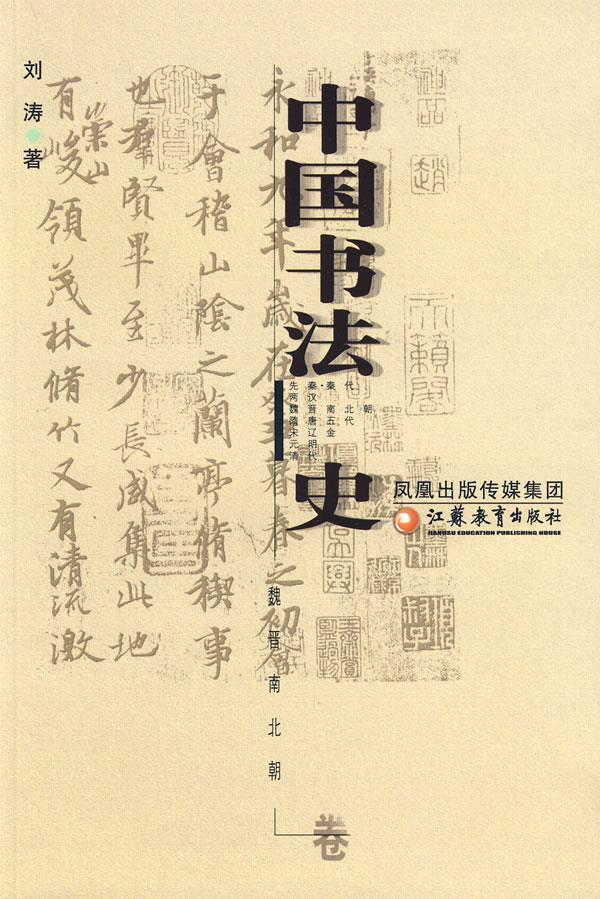 刘涛●著
中国书法史
先秦·秦代
两汉
魏晋南北朝
隋唐五代
宋辽金
元明
清代
魏晋南北朝
卷
凤凰出版传媒集团
江苏教育出版社
JIANGSU EDUCATION PUBLISHING HOUSE
永和九年歲在癸丑暮春之初會
于會稽山陰之蘭亭脩稧事
也羣賢畢至少長咸集此地
有崇山峻領茂林脩竹又有清流激
天籟閣